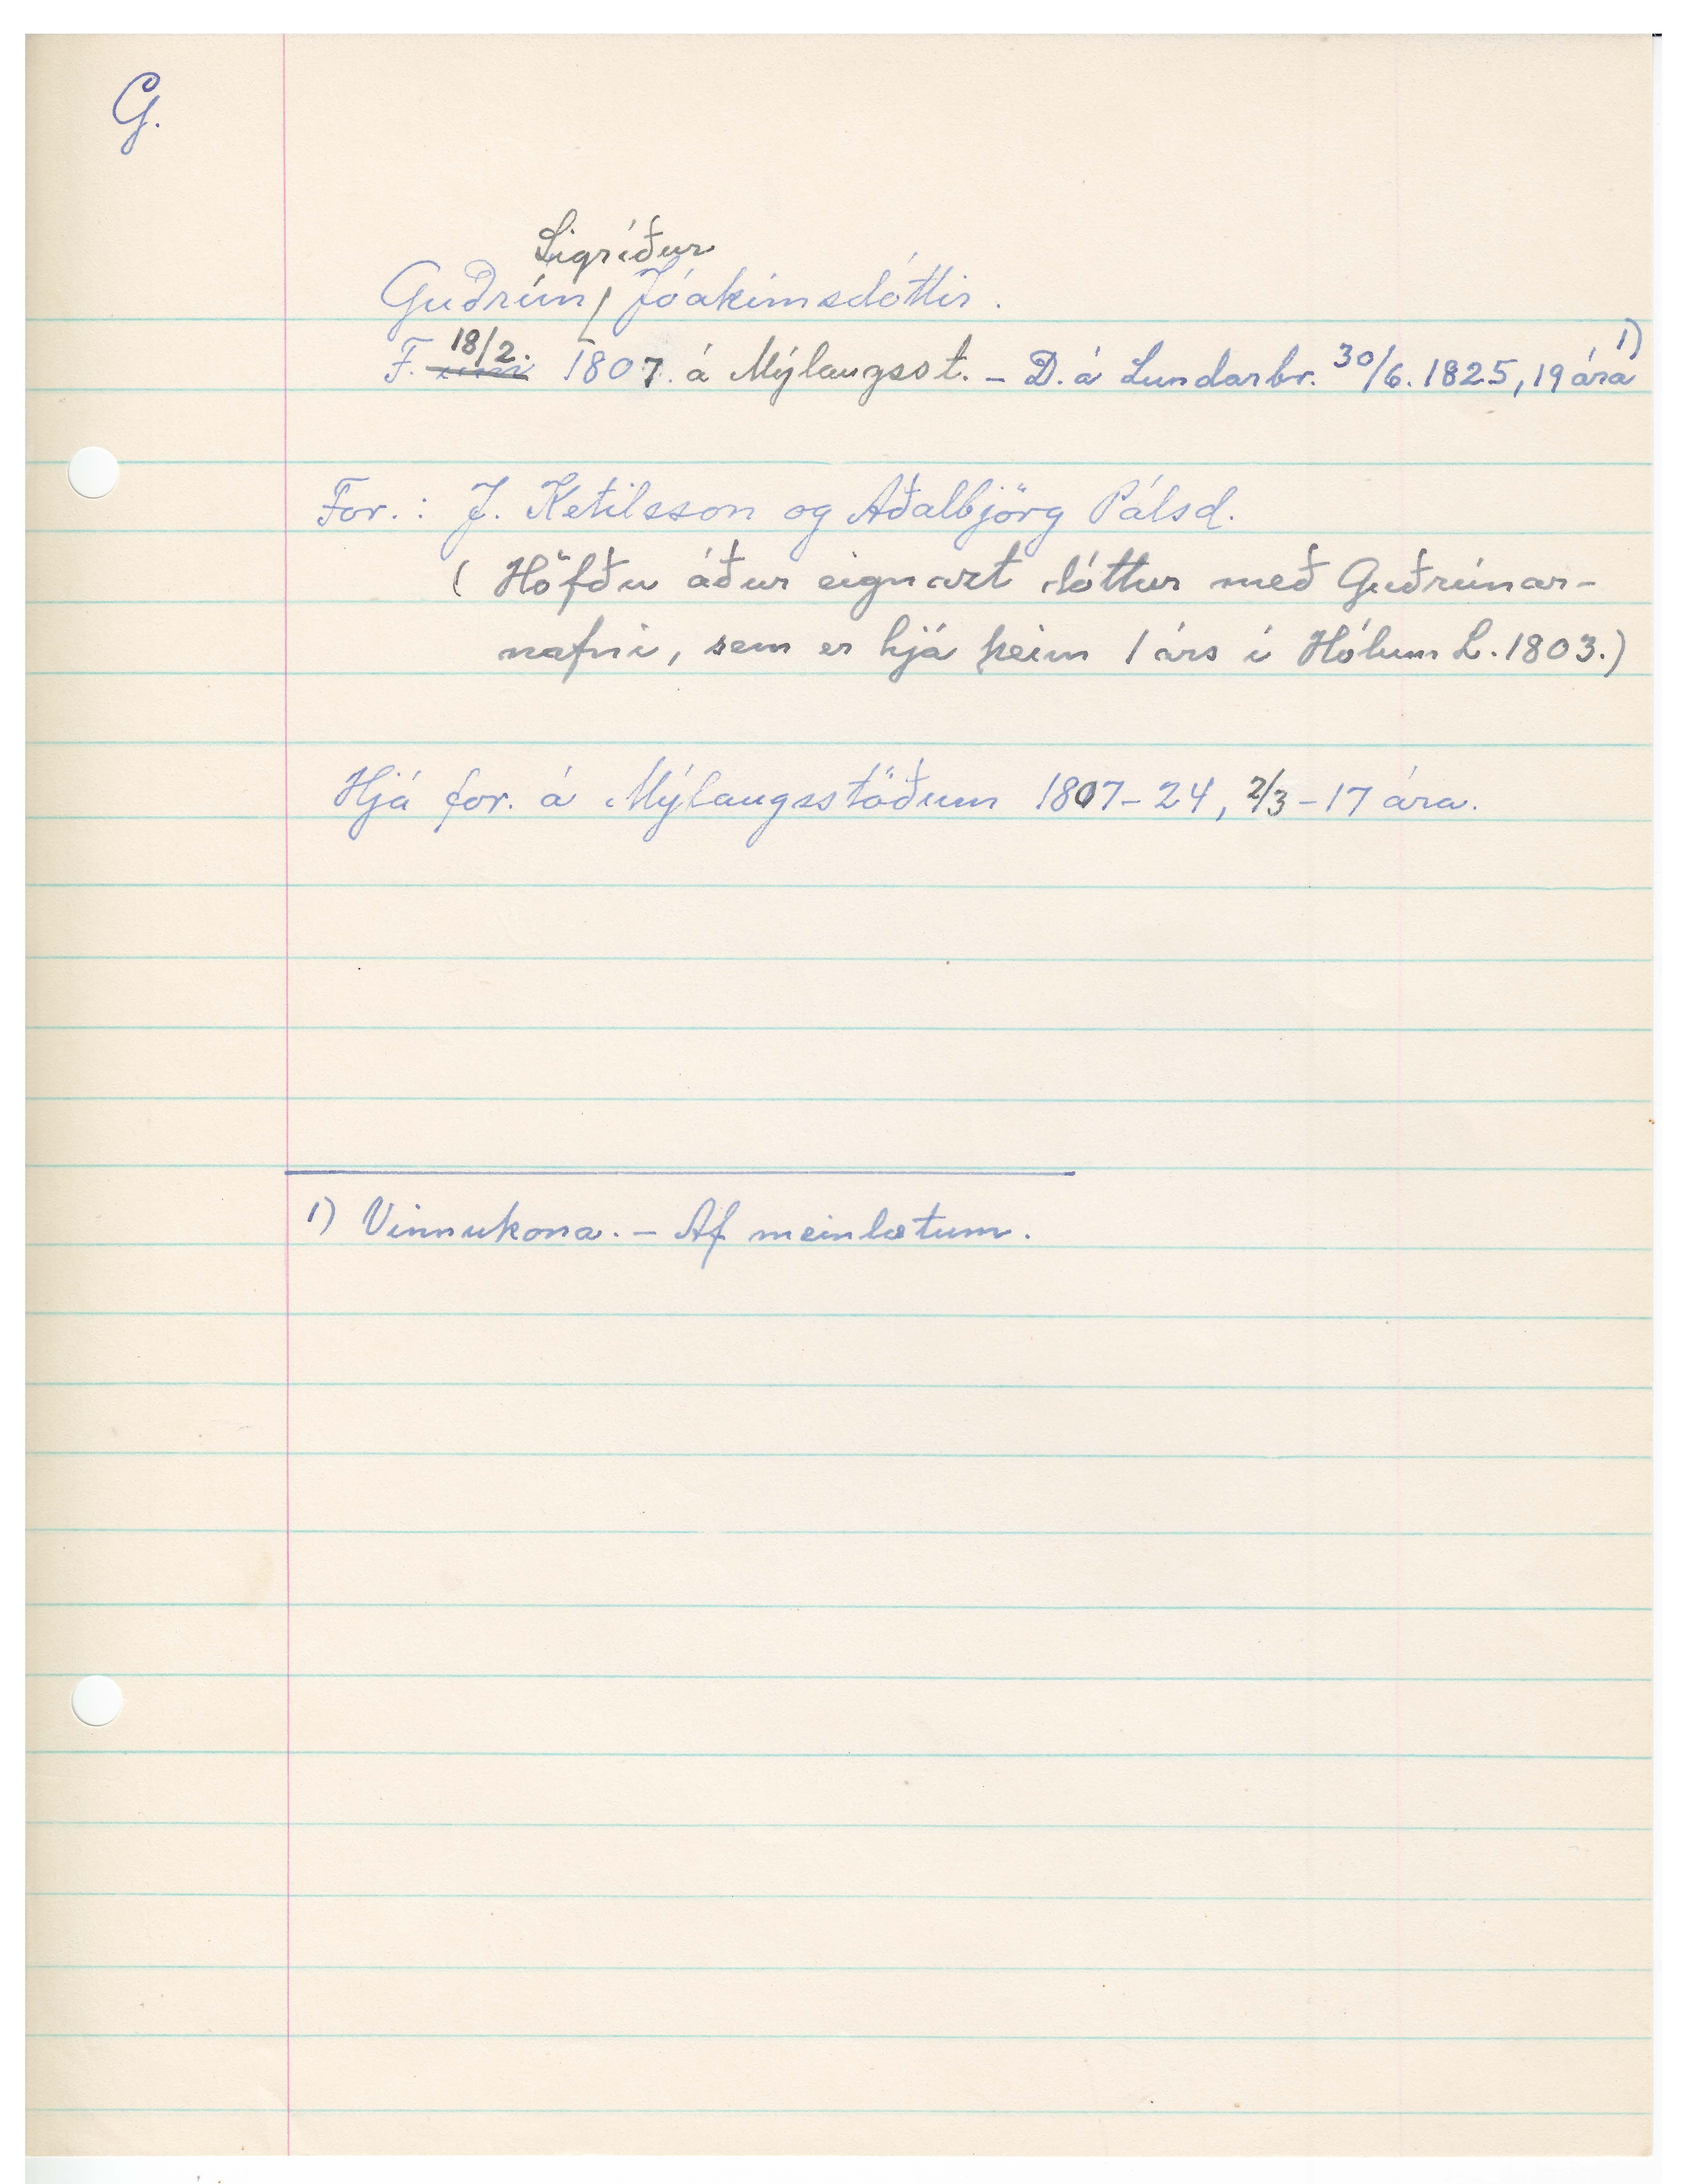 G.
Sigríður
Guðrún / Jóakimsdóttir.
F. 18/2. 1807. á Mýlaugsst. – D. á Lundarbr. 30/6. 1825, 19 ára 1)
For.: J. Ketilsson og Aðalbjörg Pálsd.
( Höfðu áður eignazt dóttur með Guðrúnar-
nafni, sem er hjá þeim 1 árs í Hólum L. 1803.)
Hjá for. á Mýlaugsstöðum 1807–24, 2/3 – 17 ára.
1) Vinnukona. – Af meinlætum.